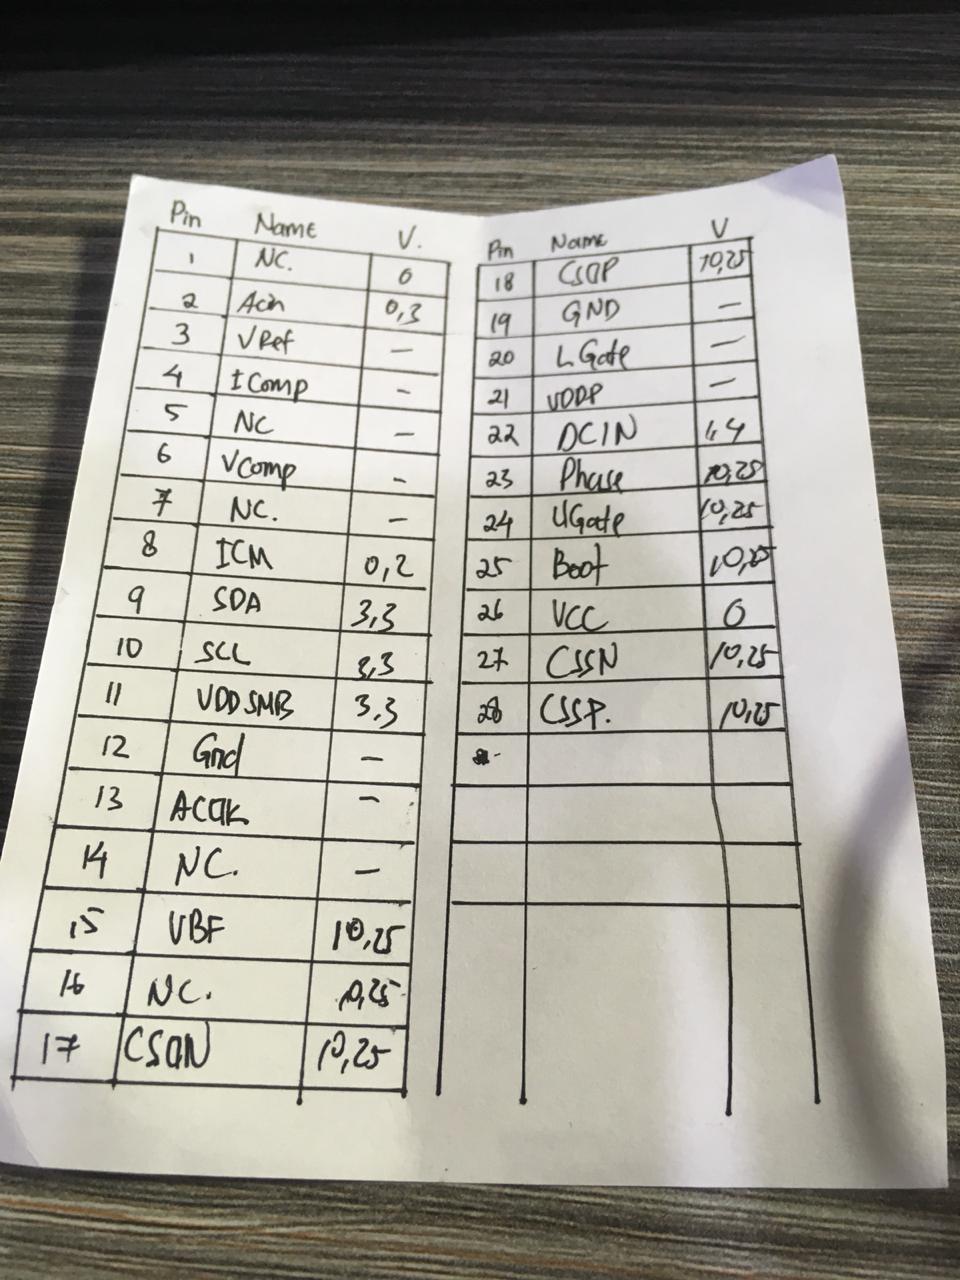 Pin Name V.
1 NC. 0
2 Acin 0,3
3 VRef —
4 IComp -
5 NC —
6 VComp -
7 NC. —
8 ICM 0,2
9 SDA 3,3
10 SCL 3,3
11 VDDSMB 3,3
12 Gnd —
13 ACOK -
14 NC. —
15 VBF 10,25
16 NC. 10,25
17 CSON 10,25
Pin Name V
18 CSOP 10,25
19 GND —
20 LGate —
21 VDDP —
22 DCIN 1,4
23 Phase 10,25
24 UGate 10,25
25 Boot 10,25
26 VCC 0
27 CSSN 10,25
28 CSSP. 10,25